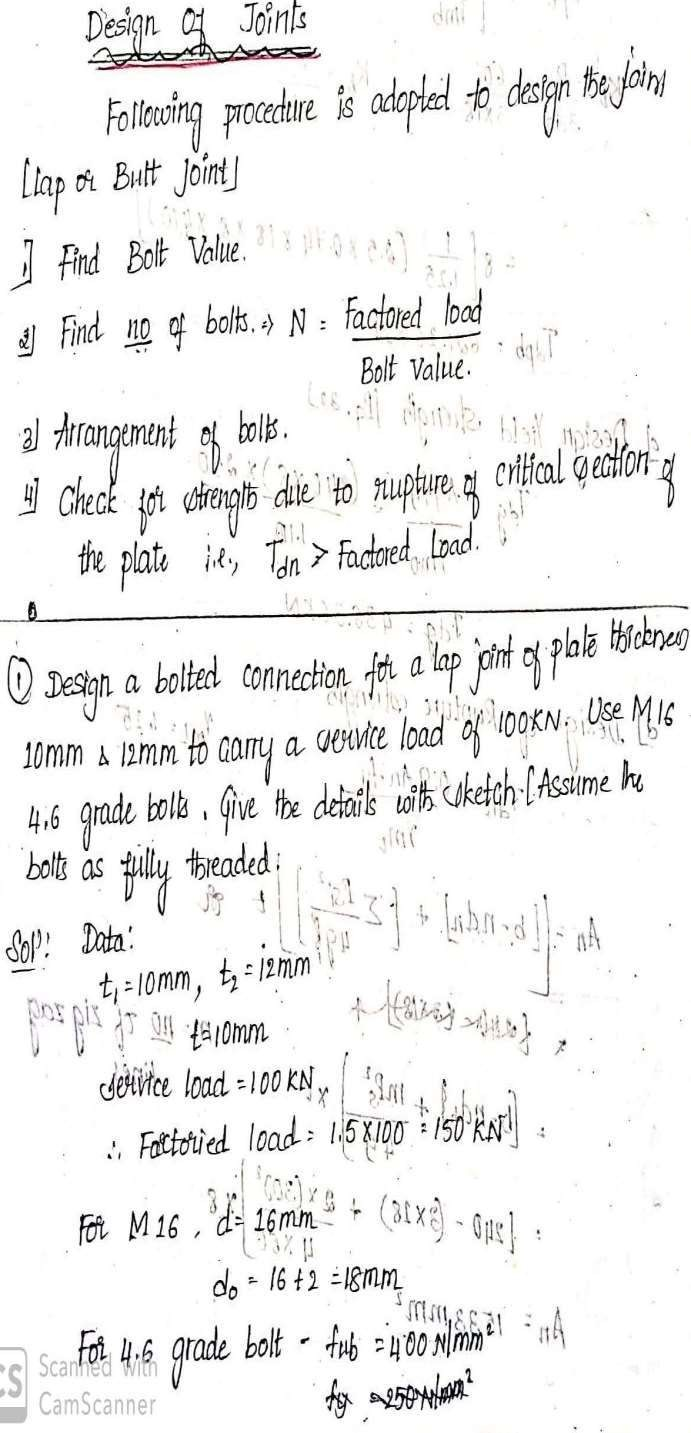 Design of Joints
Following procedure is adopted to design the joint
[Lap or Butt Joint]
1] Find Bolt Value.
2] Find no of bolts. ⇒ N = Factored load
Bolt Value.
3] Arrangement of bolts.
4] Check for strength due to rupture of critical section of
the plate i.e., Tdn > Factored Load.
① Design a bolted connection for a lap joint of plate thickness
10mm & 12mm to carry a service load of 100KN. Use M16
4.6 grade bolts. Give the details with sketch. [Assume the
bolts as fully threaded.
Sol: Data:
t₁ = 10mm, t₂ = 12mm
t = 10mm
Service load = 100 KN
∴ Factoried load = 1.5 x 100 = 150 KN
For M 16, d = 16mm
d₀ = 16 + 2 = 18mm
For 4.6 grade bolt - fub = 400 N/mm²
fy = 250 N/mm²
CS Scanned with
CamScanner